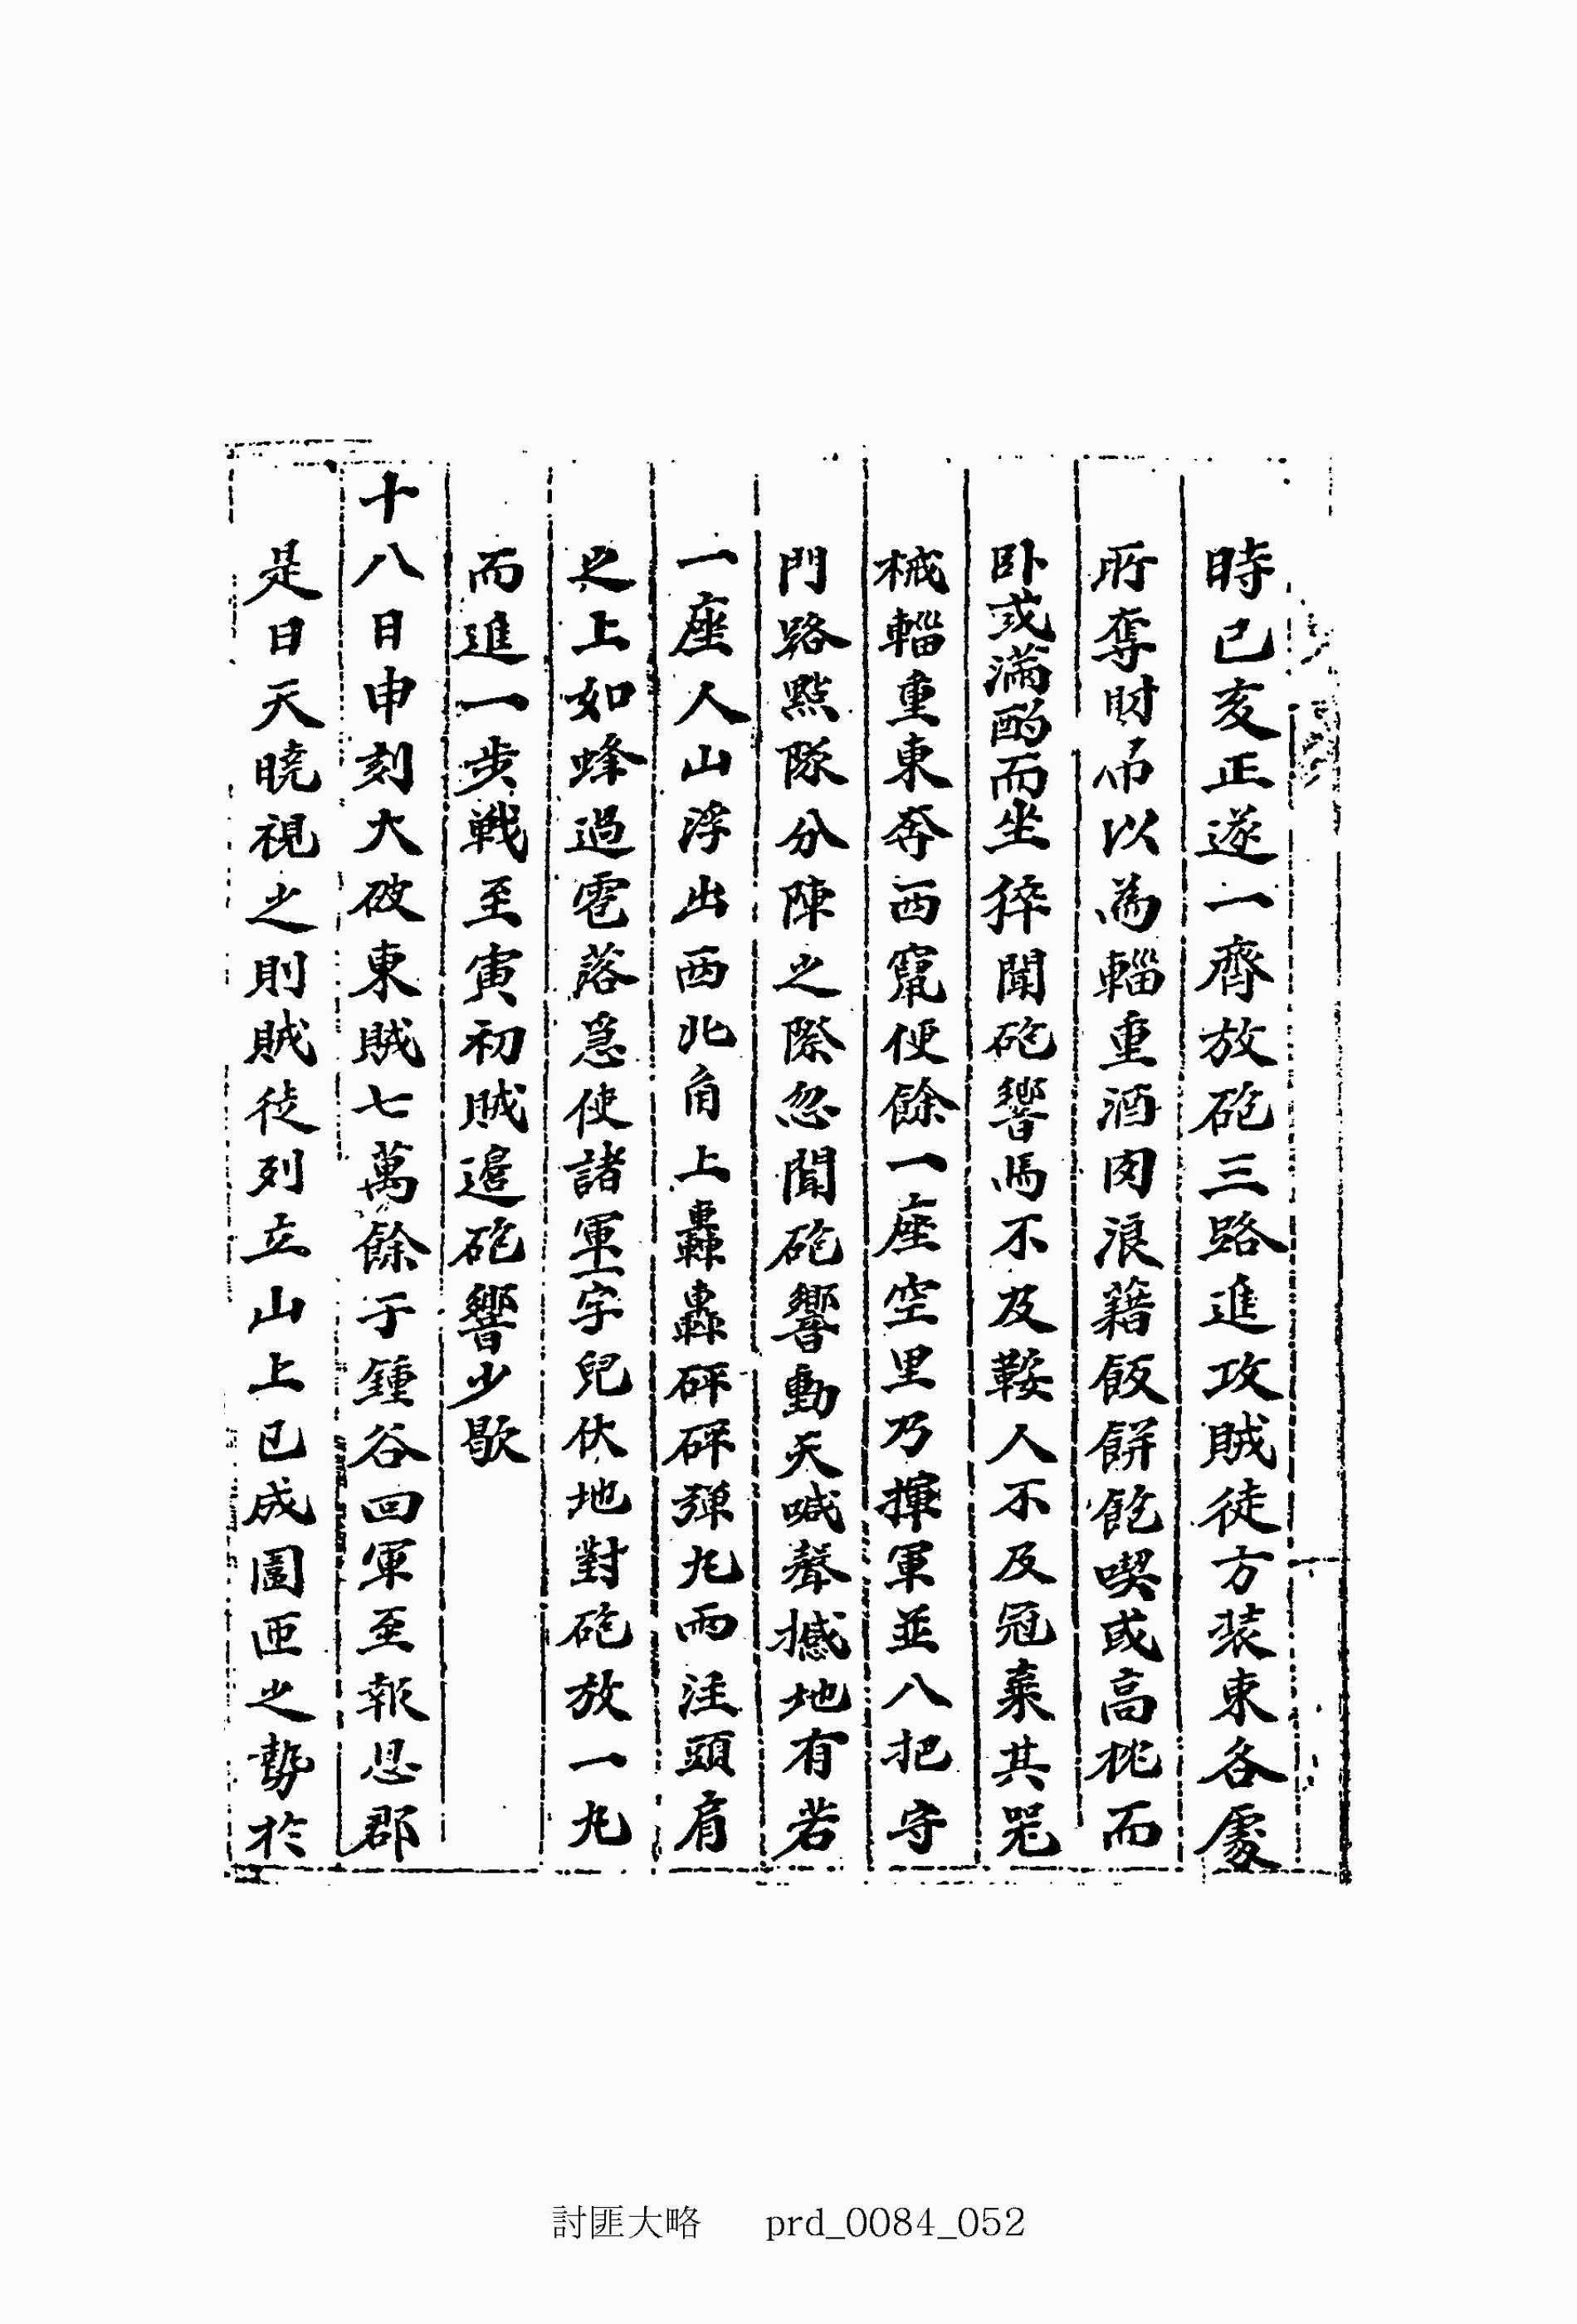 時已亥正遂一齊放砲三路進攻賊徒方装束各處
所奪財帛以為輜重酒肉浪藉飯餅飽喫或高枕而
卧或滿酌而坐猝聞砲響馬不及鞍人不及冠棄其器
械輜重東奔西竄便餘一座空里乃揮軍並入把守
門路點隊分陣之際忽聞砲響動天喊聲撼地有若
一座人山浮出西北角上轟轟砰砰弹丸雨注頭肩
之上如蜂過雹落急使諸軍一字兒伏地對砲放一丸
而進一步戦至寅初賊邉砲響少歇
十八日申刻大破東賊七萬餘于鍾谷回軍至報恩郡
是日天曉視之則賊徒列立山上已成圖匝之勢於
討匪大略 prd_0084_052